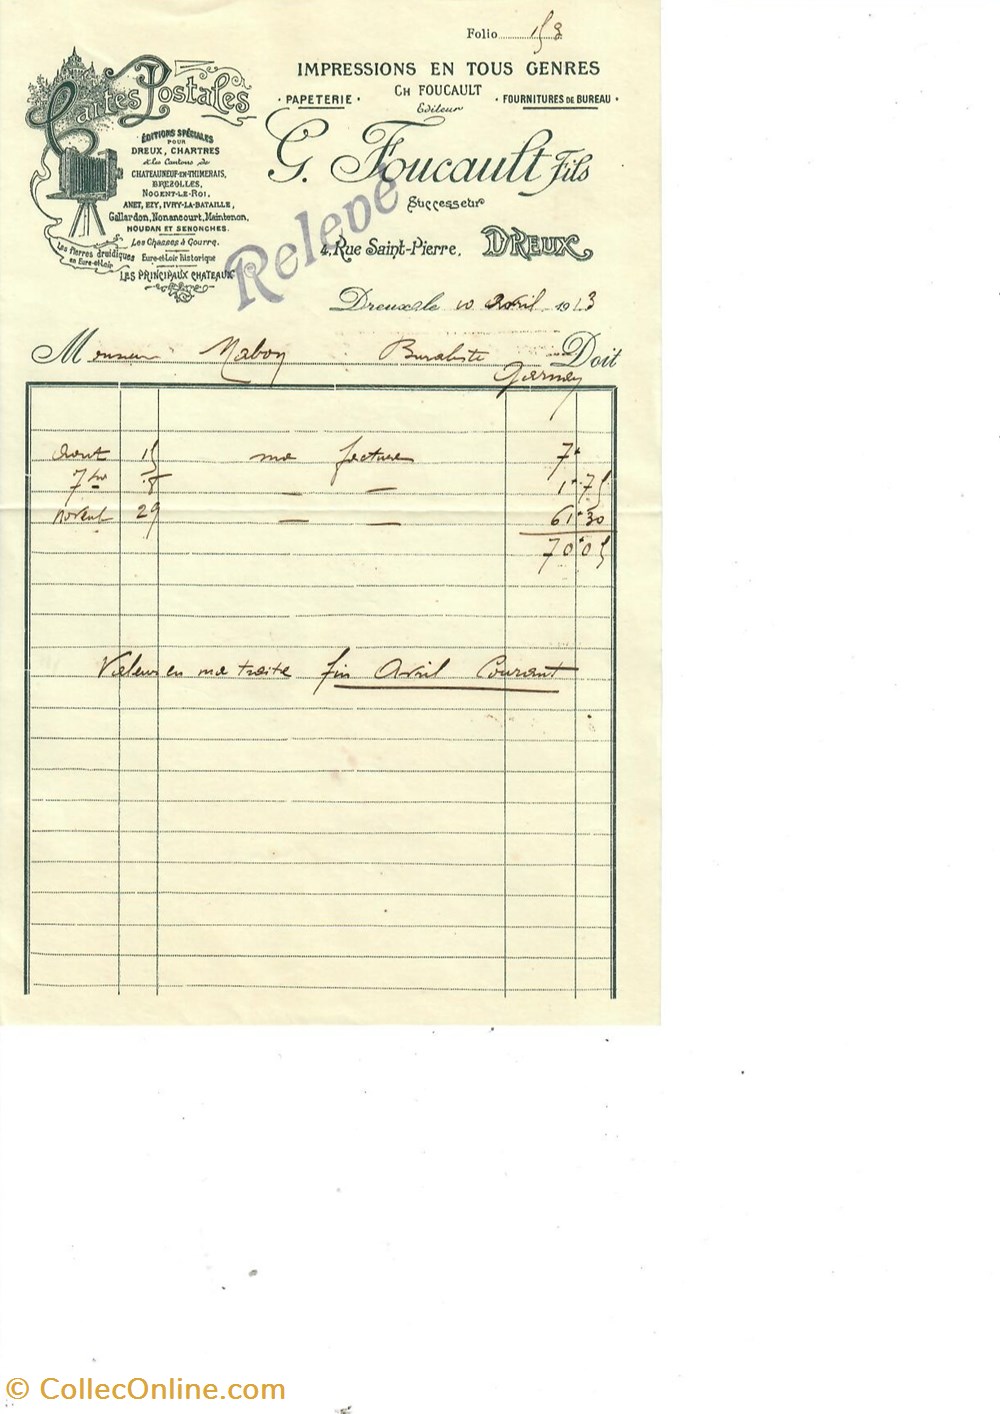 Folio 158
IMPRESSIONS EN TOUS GENRES
· PAPETERIE · CH FOUCAULT · FOURNITURES DE BUREAU ·
Editeur
G. Foucault Fils
Successeur
4, Rue Saint-Pierre, DREUX
Cartes Postales
ÉDITIONS SPÉCIALES
POUR
DREUX, CHARTRES
& les Cantons de
CHATEAUNEUF-EN-THIMERAIS,
BREZOLLES,
NOGENT-LE-ROI,
ANET, EZY, IVRY-LA-BATAILLE,
Gallardon, Nonancourt, Maintenon,
HOUDAN ET SENONCHES.
Les Chasses à Courre.
Les Pierres druidiques
en Eure-et-Loir
Eure-et-Loir historique
LES PRINCIPAUX CHATEAUX
Relevé
Dreux, le 10 Avril 1913
Monsieur Mabon Buraliste Doit
Garnay
Aout 15 ma facture 7"
7bre 8 — — 1" 75
Novemb 29 — — 61" 30
70" 05
Valeur en ma traite fin Avril Courant
© CollecOnline.com